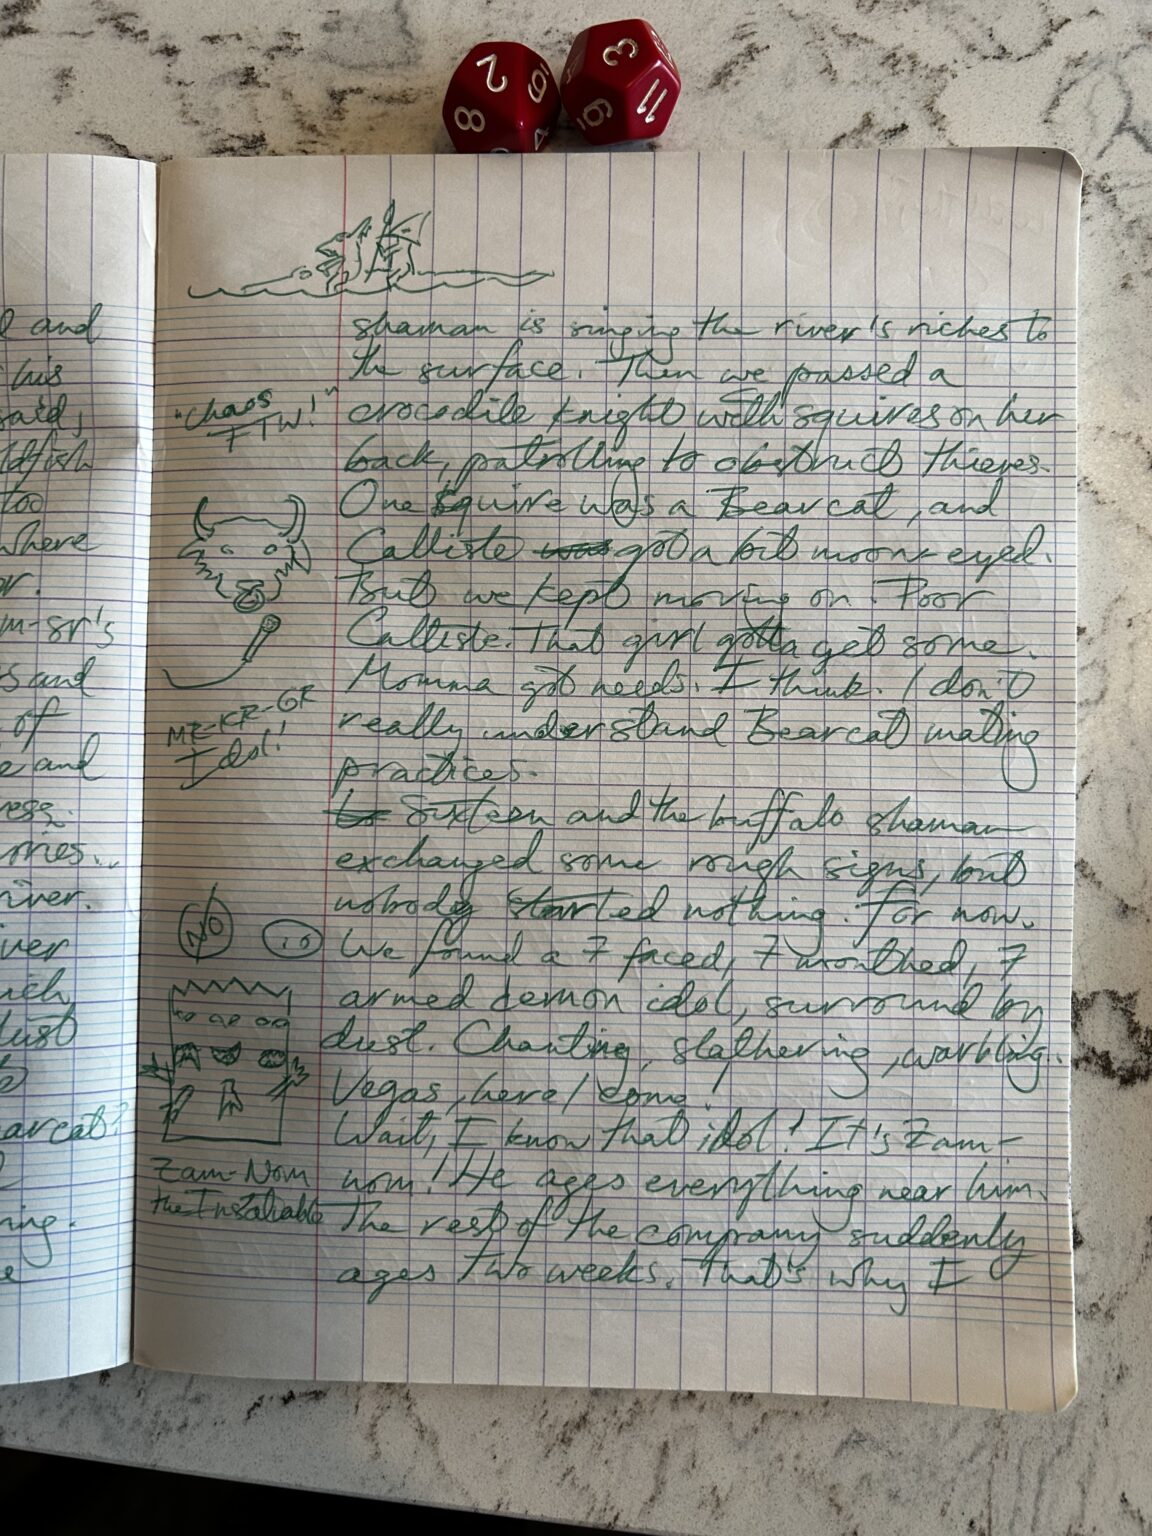 2
8
6
3
6
11
l and
his
said,
ldfish
too
where
or.
m-sr's
s and
of
e and
ress.
ories...
river.
iver
ich,
dust
earcat?
ning.
e
"Chaos
FTW!"
ME-KR-GR
Idol!
NO
Zam-Nom
the Insatiable
shaman is singing the river's riches to
the surface. Then we passed a
crocodile knight with squires on her
back, patrolling to obstruct thieves.
One squire was a Bearcat, and
Calliste was got a bit moon-eyed.
But we kept moving on. Poor
Calliste. That girl gotta get some.
Momma got needs. I think. I don't
really understand Bearcat mating
practices.
Sixteen and the buffalo shaman
exchanged some rough signs, but
nobody started nothing. For now.
We found a 7 faced, 7 mouthed, 7
armed demon idol, surround by
dust. Chanting, slathering, warbling.
Vegas, here I come!
Wait, I know that idol! It's Zam-
nom! He ages everything near him.
The rest of the company suddenly
ages two weeks. That's why I